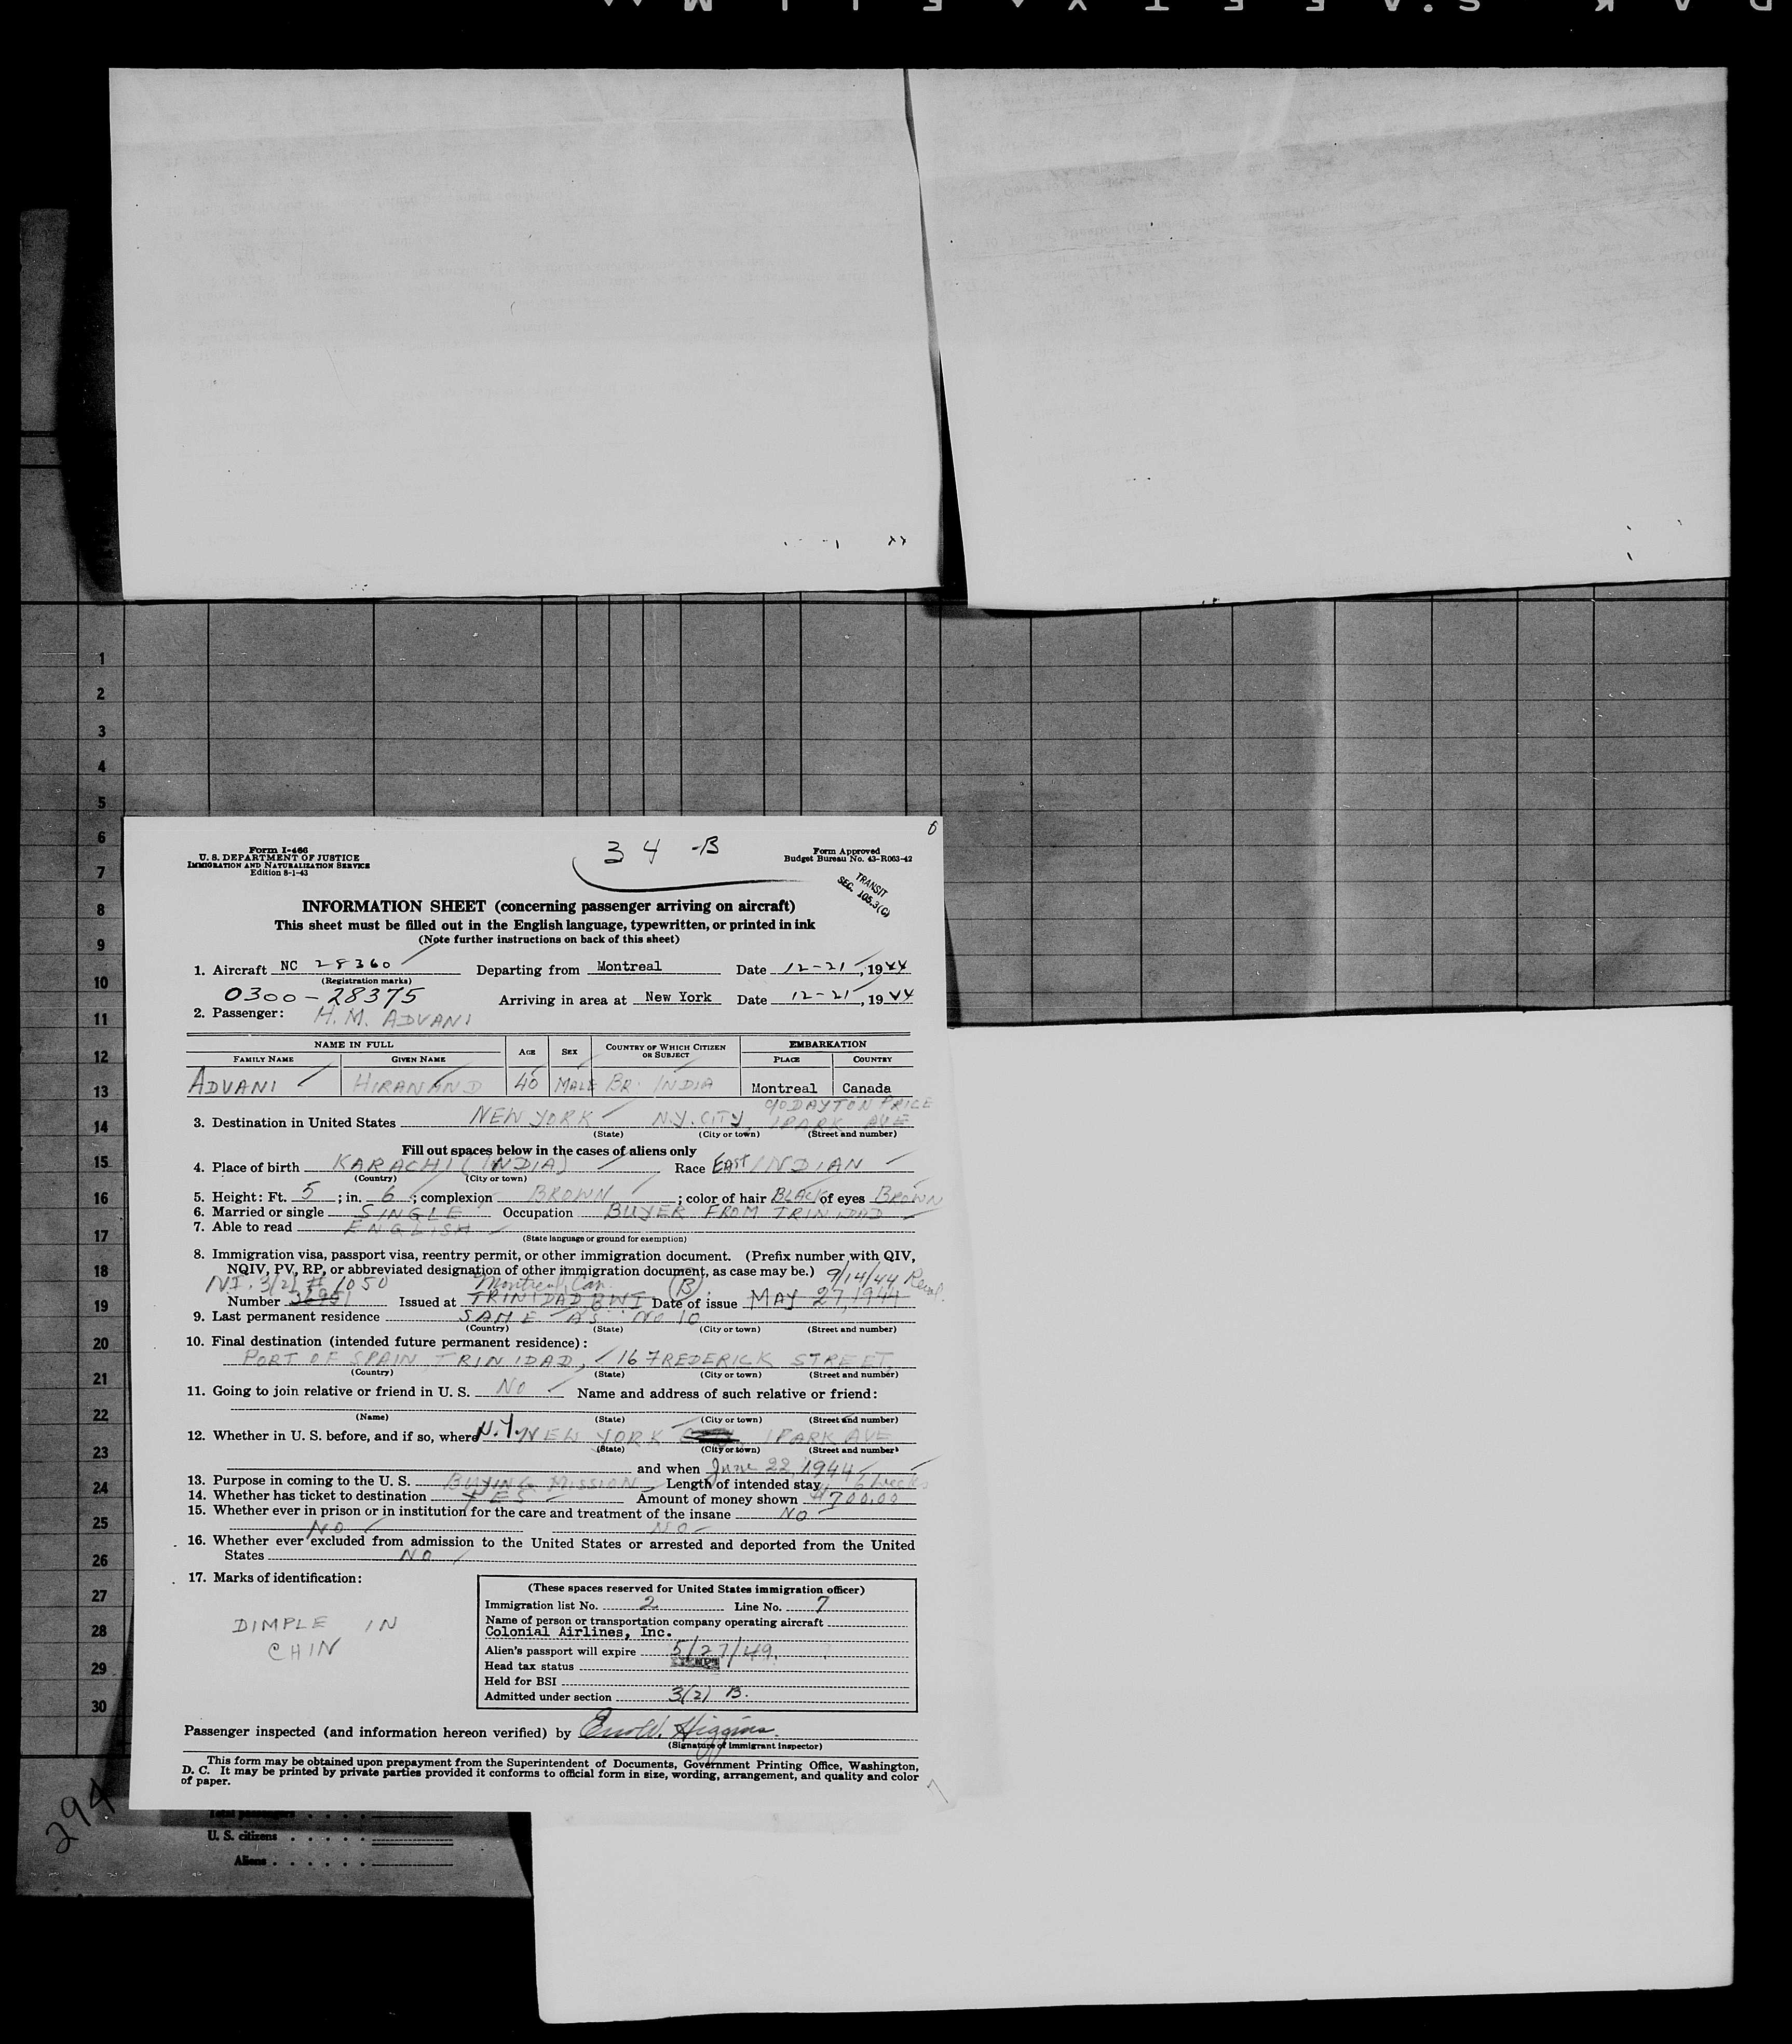 DAK SAFETY FILM
Form I-466
U. S. DEPARTMENT OF JUSTICE
IMMIGRATION AND NATURALIZATION SERVICE
Edition 8-1-43
34-B
6
Form Approved
Budget Bureau No. 43-R063-42
TRANSIT
SEC. 105.3(C)
INFORMATION SHEET (concerning passenger arriving on aircraft)
This sheet must be filled out in the English language, typewritten, or printed in ink
(Note further instructions on back of this sheet)
1. Aircraft NC 28360 Departing from Montreal Date 12-21, 1944
(Registration marks)
0300-28375 Arriving in area at New York Date 12-21, 1944
2. Passenger: H. M. ADVANI
NAME IN FULL AGE SEX COUNTRY OF WHICH CITIZEN OR SUBJECT EMBARKATION
FAMILY NAME GIVEN NAME PLACE COUNTRY
ADVANI HIRANAND 40 MALE BR. INDIA Montreal Canada
c/o DAYTON PRICE
3. Destination in United States NEW YORK N.Y. CITY, 1 PARK AVE
(State) (City or town) (Street and number)
Fill out spaces below in the cases of aliens only
4. Place of birth KARACHI (INDIA) Race EAST INDIAN
(Country) (City or town)
5. Height: Ft. 5; in. 6; complexion BROWN; color of hair BLACK of eyes BROWN
6. Married or single SINGLE Occupation BUYER FROM TRINIDAD
7. Able to read ENGLISH
(State language or ground for exemption)
8. Immigration visa, passport visa, reentry permit, or other immigration document. (Prefix number with QIV,
NQIV, PV, RP, or abbreviated designation of other immigration document, as case may be.) 9/14/44
NI. 3(2) # 1050 Montreal, Can. B
Number 36951 Issued at TRINIDAD, BWI Date of issue MAY 27, 1944
9. Last permanent residence SAME AS No 10
(Country) (State) (City or town) (Street and number)
10. Final destination (intended future permanent residence):
PORT OF SPAIN TRINIDAD, 16 FREDERICK STREET,
(Country) (State) (City or town) (Street and number)
11. Going to join relative or friend in U. S. NO Name and address of such relative or friend:
(Name) (State) (City or town) (Street and number)
12. Whether in U. S. before, and if so, where N.Y. NEW YORK 1 PARK AVE
(State) (City or town) (Street and number)
and when June 22, 1944
13. Purpose in coming to the U. S. BUYING MISSION Length of intended stay 6 weeks
14. Whether has ticket to destination YES Amount of money shown $700.00
15. Whether ever in prison or in institution for the care and treatment of the insane NO
NO NO
16. Whether ever excluded from admission to the United States or arrested and deported from the United
States NO
17. Marks of identification:
DIMPLE IN
CHIN
(These spaces reserved for United States immigration officer)
Immigration list No. 2 Line No. 7
Name of person or transportation company operating aircraft
Colonial Airlines, Inc.
Alien's passport will expire 5/27/49.
Head tax status EXEMPT
Held for BSI
Admitted under section 3(2) B.
Passenger inspected (and information hereon verified) by W. Higgins
(Signature of immigrant inspector)
This form may be obtained upon prepayment from the Superintendent of Documents, Government Printing Office, Washington,
D. C. It may be printed by private parties provided it conforms to official form in size, wording, arrangement, and quality and color
of paper.
1
2
3
4
5
6
7
8
9
10
11
12
13
14
15
16
17
18
19
20
21
22
23
24
25
26
27
28
29
30
294
Total passengers
U. S. citizens
Aliens